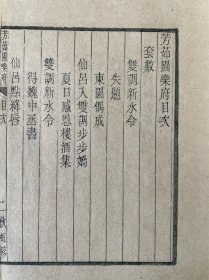 芳茹園樂府目次
套數
雙調新水令
失題
東園偶成
仙呂入雙調步步嬌
夏日感恩樓酒集
雙調新水令
得魏中丞書
仙呂點絳唇
芳茹園樂府 目次
一